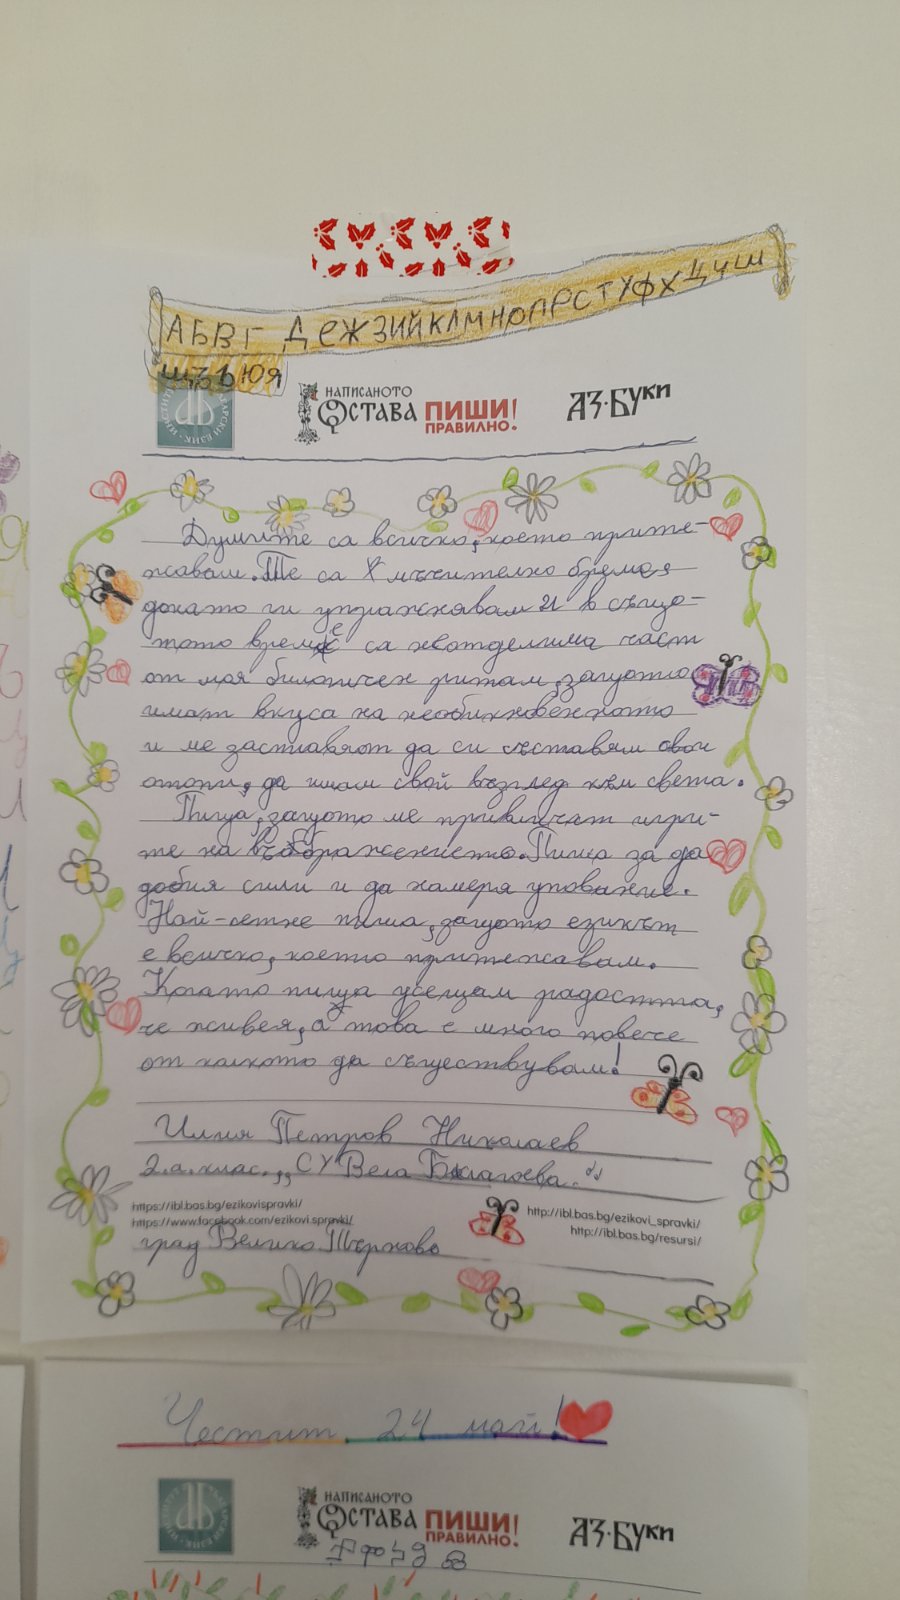 АБВГ ДЕЖЗИЙКЛМНОПРСТУФХЦЧШ
ЩЪЬЮЯ
НАПИСАНОТО
ОСТАВА
ПИШИ
ПРАВИЛНО!
АЗ·БУКИ
Думите са всичко, което прите-
жавам. Те са мъчително бреме,
докато ги упражнявам и в също-
тото време са неотделима част
от моя билогичен ритъм, защото
имат вкуса на необикновеното
и ме заставят да си съставям свои
опори, да имам свой възглед към света.
Пиша, защото ме привличат игри-
те на въображението. Пиша за да
добия сили и да намеря упование.
Най-сетне пиша, защото езикът
е всичко, което притежавам.
Когато пиша усещам радостта,
че живея, а това е много повече
от колкото да съществувам!
Илия Петров Николаев
2.а.клас. „СУ Вела Благоева."
https://ibl.bas.bg/ezikovispravki/
https://www.facebook.com/ezikovi.spravki/
http://ibl.bas.bg/ezikovi_spravki/
http://ibl.bas.bg/resursi/
град Велико Търново
Честит 24 май!
НАПИСАНОТО
ОСТАВА
ПИШИ
ПРАВИЛНО!
АЗ·БУКИ